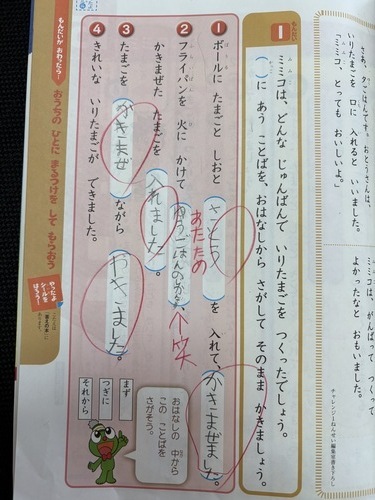 さあ、夕ごはんです。おとうさんは、
いりたまごを 口に 入れると いいました。
「ミミコ、とっても おいしいよ。」
ミミコは、がんばって つくって
よかったなと おもいました。
チャレンジ1ねんせい編集室書き下ろし
もんだい
1
ミミコは、どんな じゅんばんで いりたまごを つくったでしょう。
( )に あう ことばを、おはなしから さがして そのまま かきましょう。
① ボールに たまごと しおと さとう を 入れて、かきまぜました。
② フライパンを 火に かけて あたためた
ゆうごはんのしたく 笑
かきまぜた たまごを 入れました。
③ たまごを かきまぜ ながら やきました。
④ きれいな いりたまごが できました。
おはなしの 中から
この ことばを
さがそう。
まず
つぎに
それから
もんだいが おわったら…
おうちの ひとに まるつけを して もらおう
やったよ
シールを
はろう!